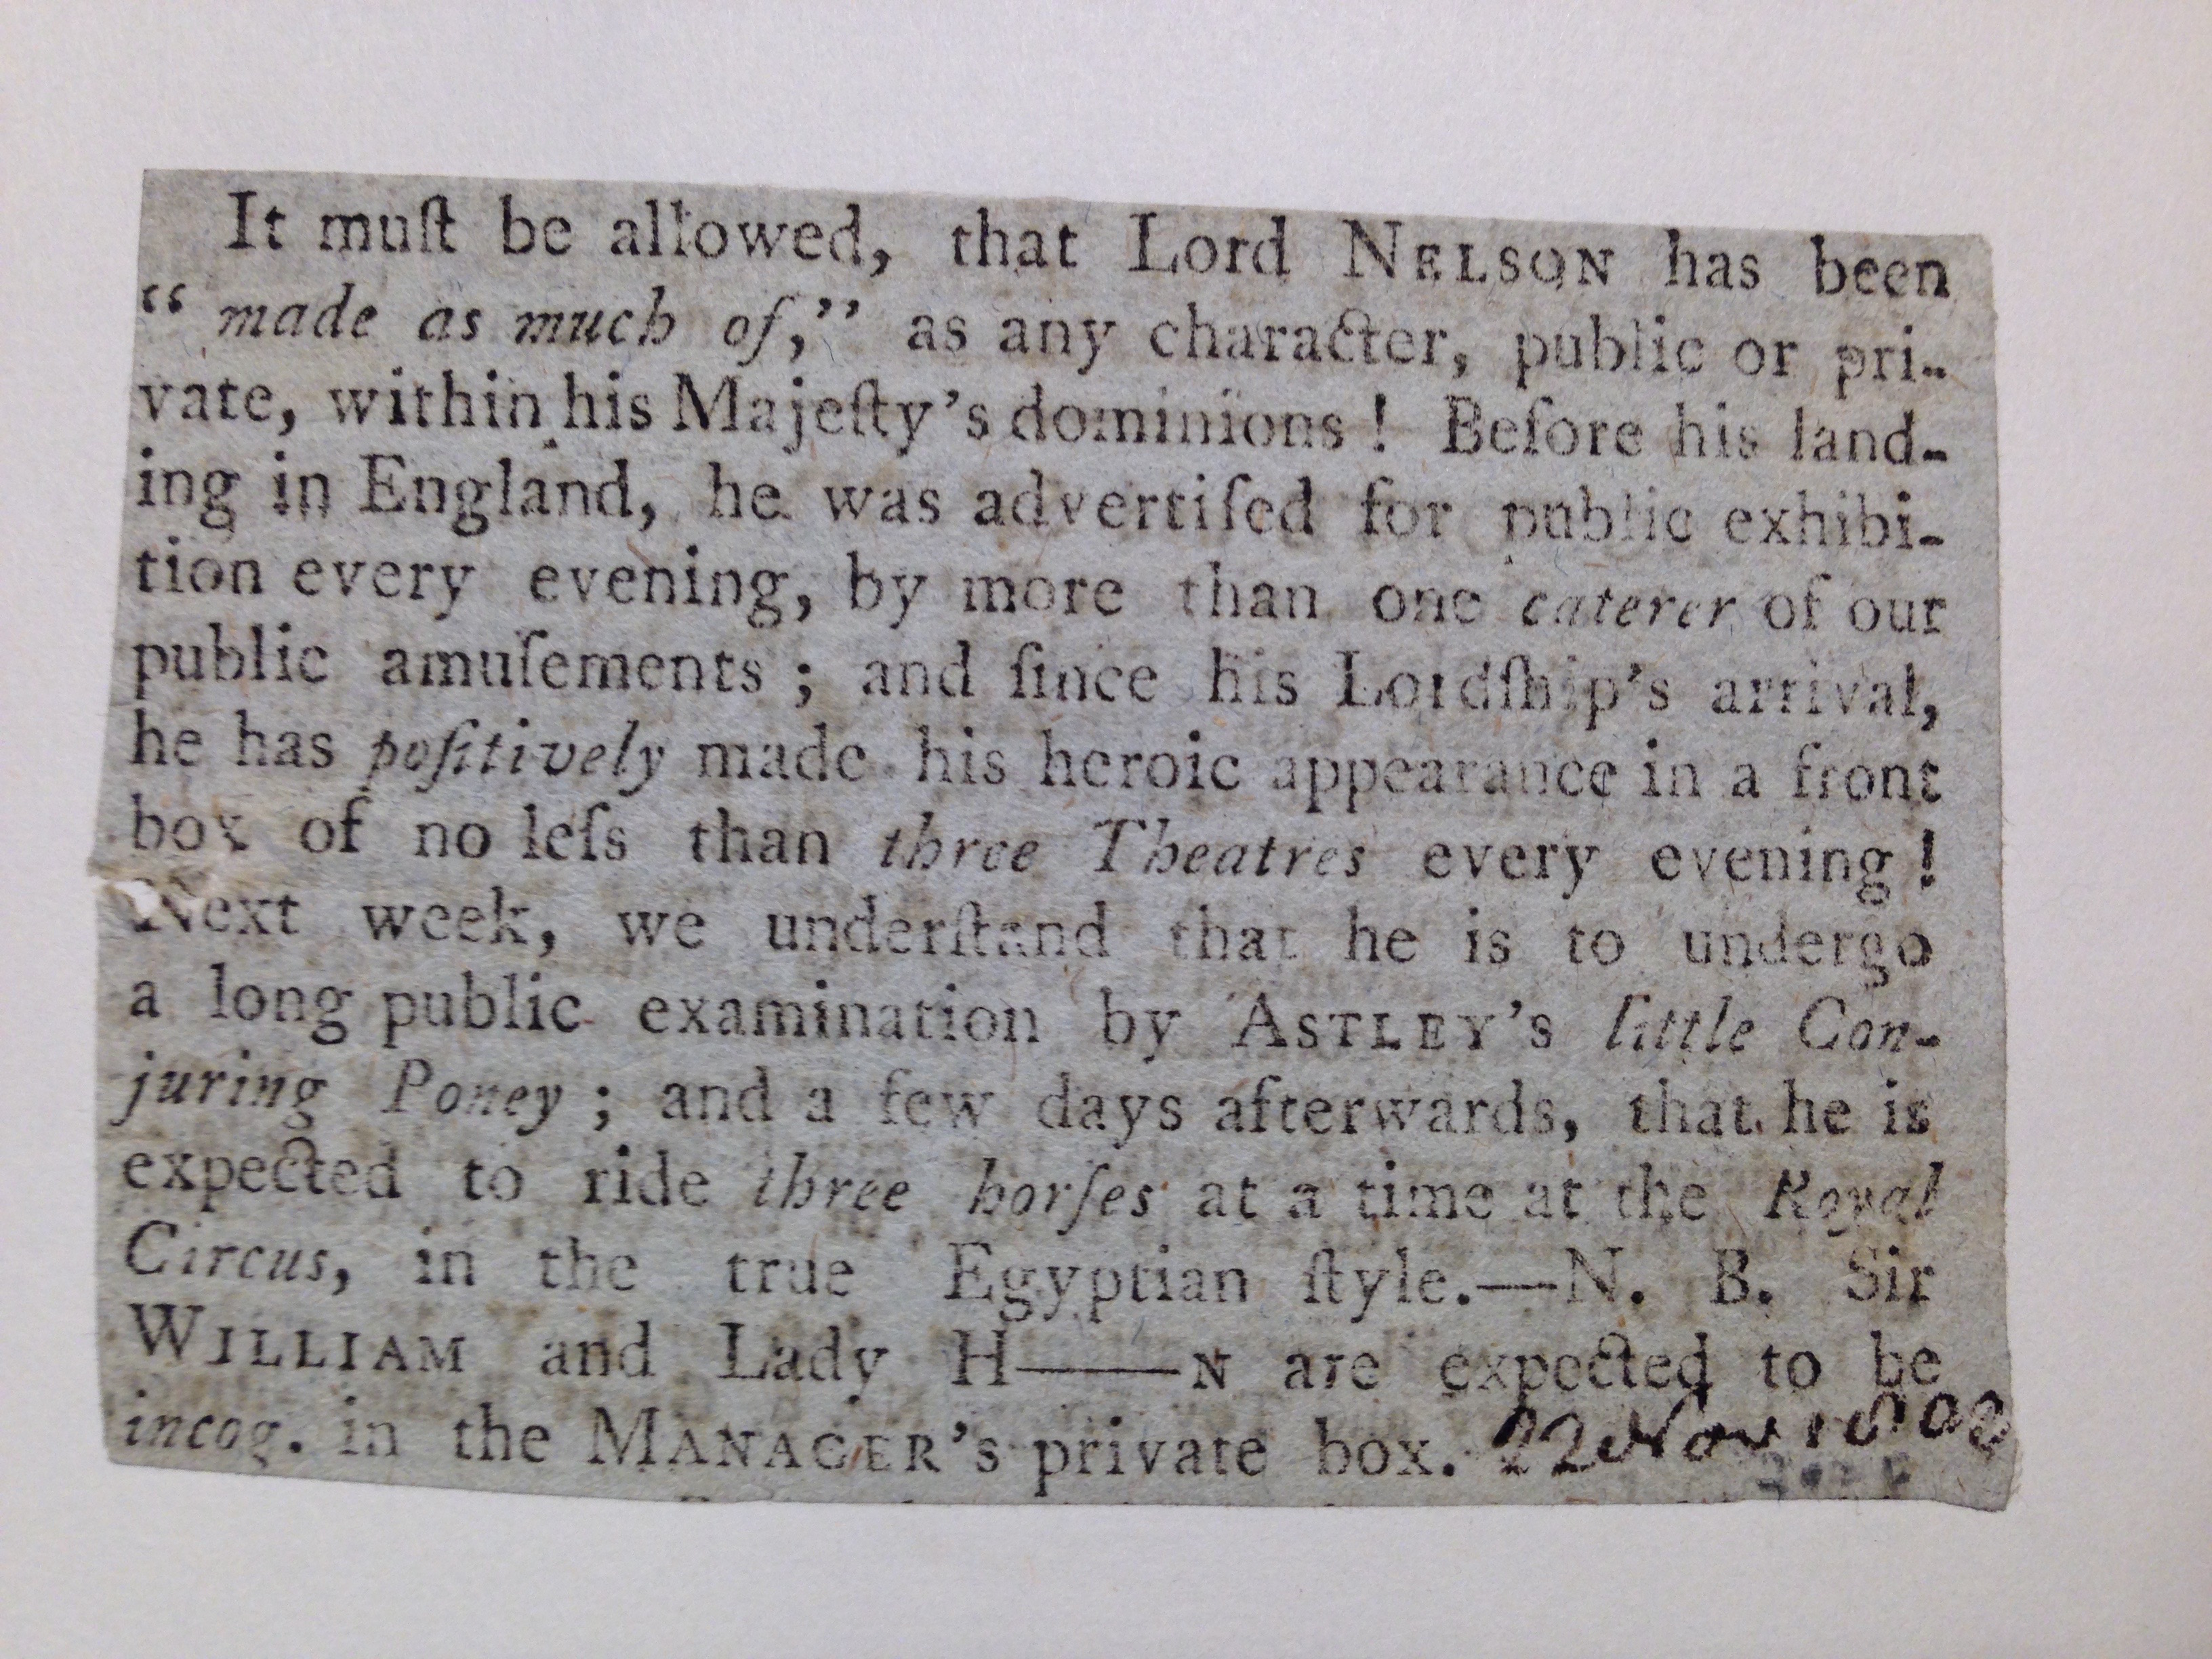 It muſt be allowed, that Lord NELSON has been
“ made as much of,” as any character, public or pri-
vate, within his Majeſty's dominions ! Before his land-
ing in England, he was advertiſed for public exhibi-
tion every evening, by more than one caterer of our
public amuſements ; and ſince his Lordſhip's arrival,
he has poſitively made his heroic appearance in a front
box of no leſs than three Theatres every evening !
Next week, we underſtand that he is to undergo
a long public examination by ASTLEY'S little Con-
juring Poney ; and a few days afterwards, that he is
expected to ride three horſes at a time at the Royal
Circus, in the true Egyptian ſtyle.—N. B. Sir
WILLIAM and Lady H——N are expected to be
incog. in the MANAGER's private box. 22 Nov 1800